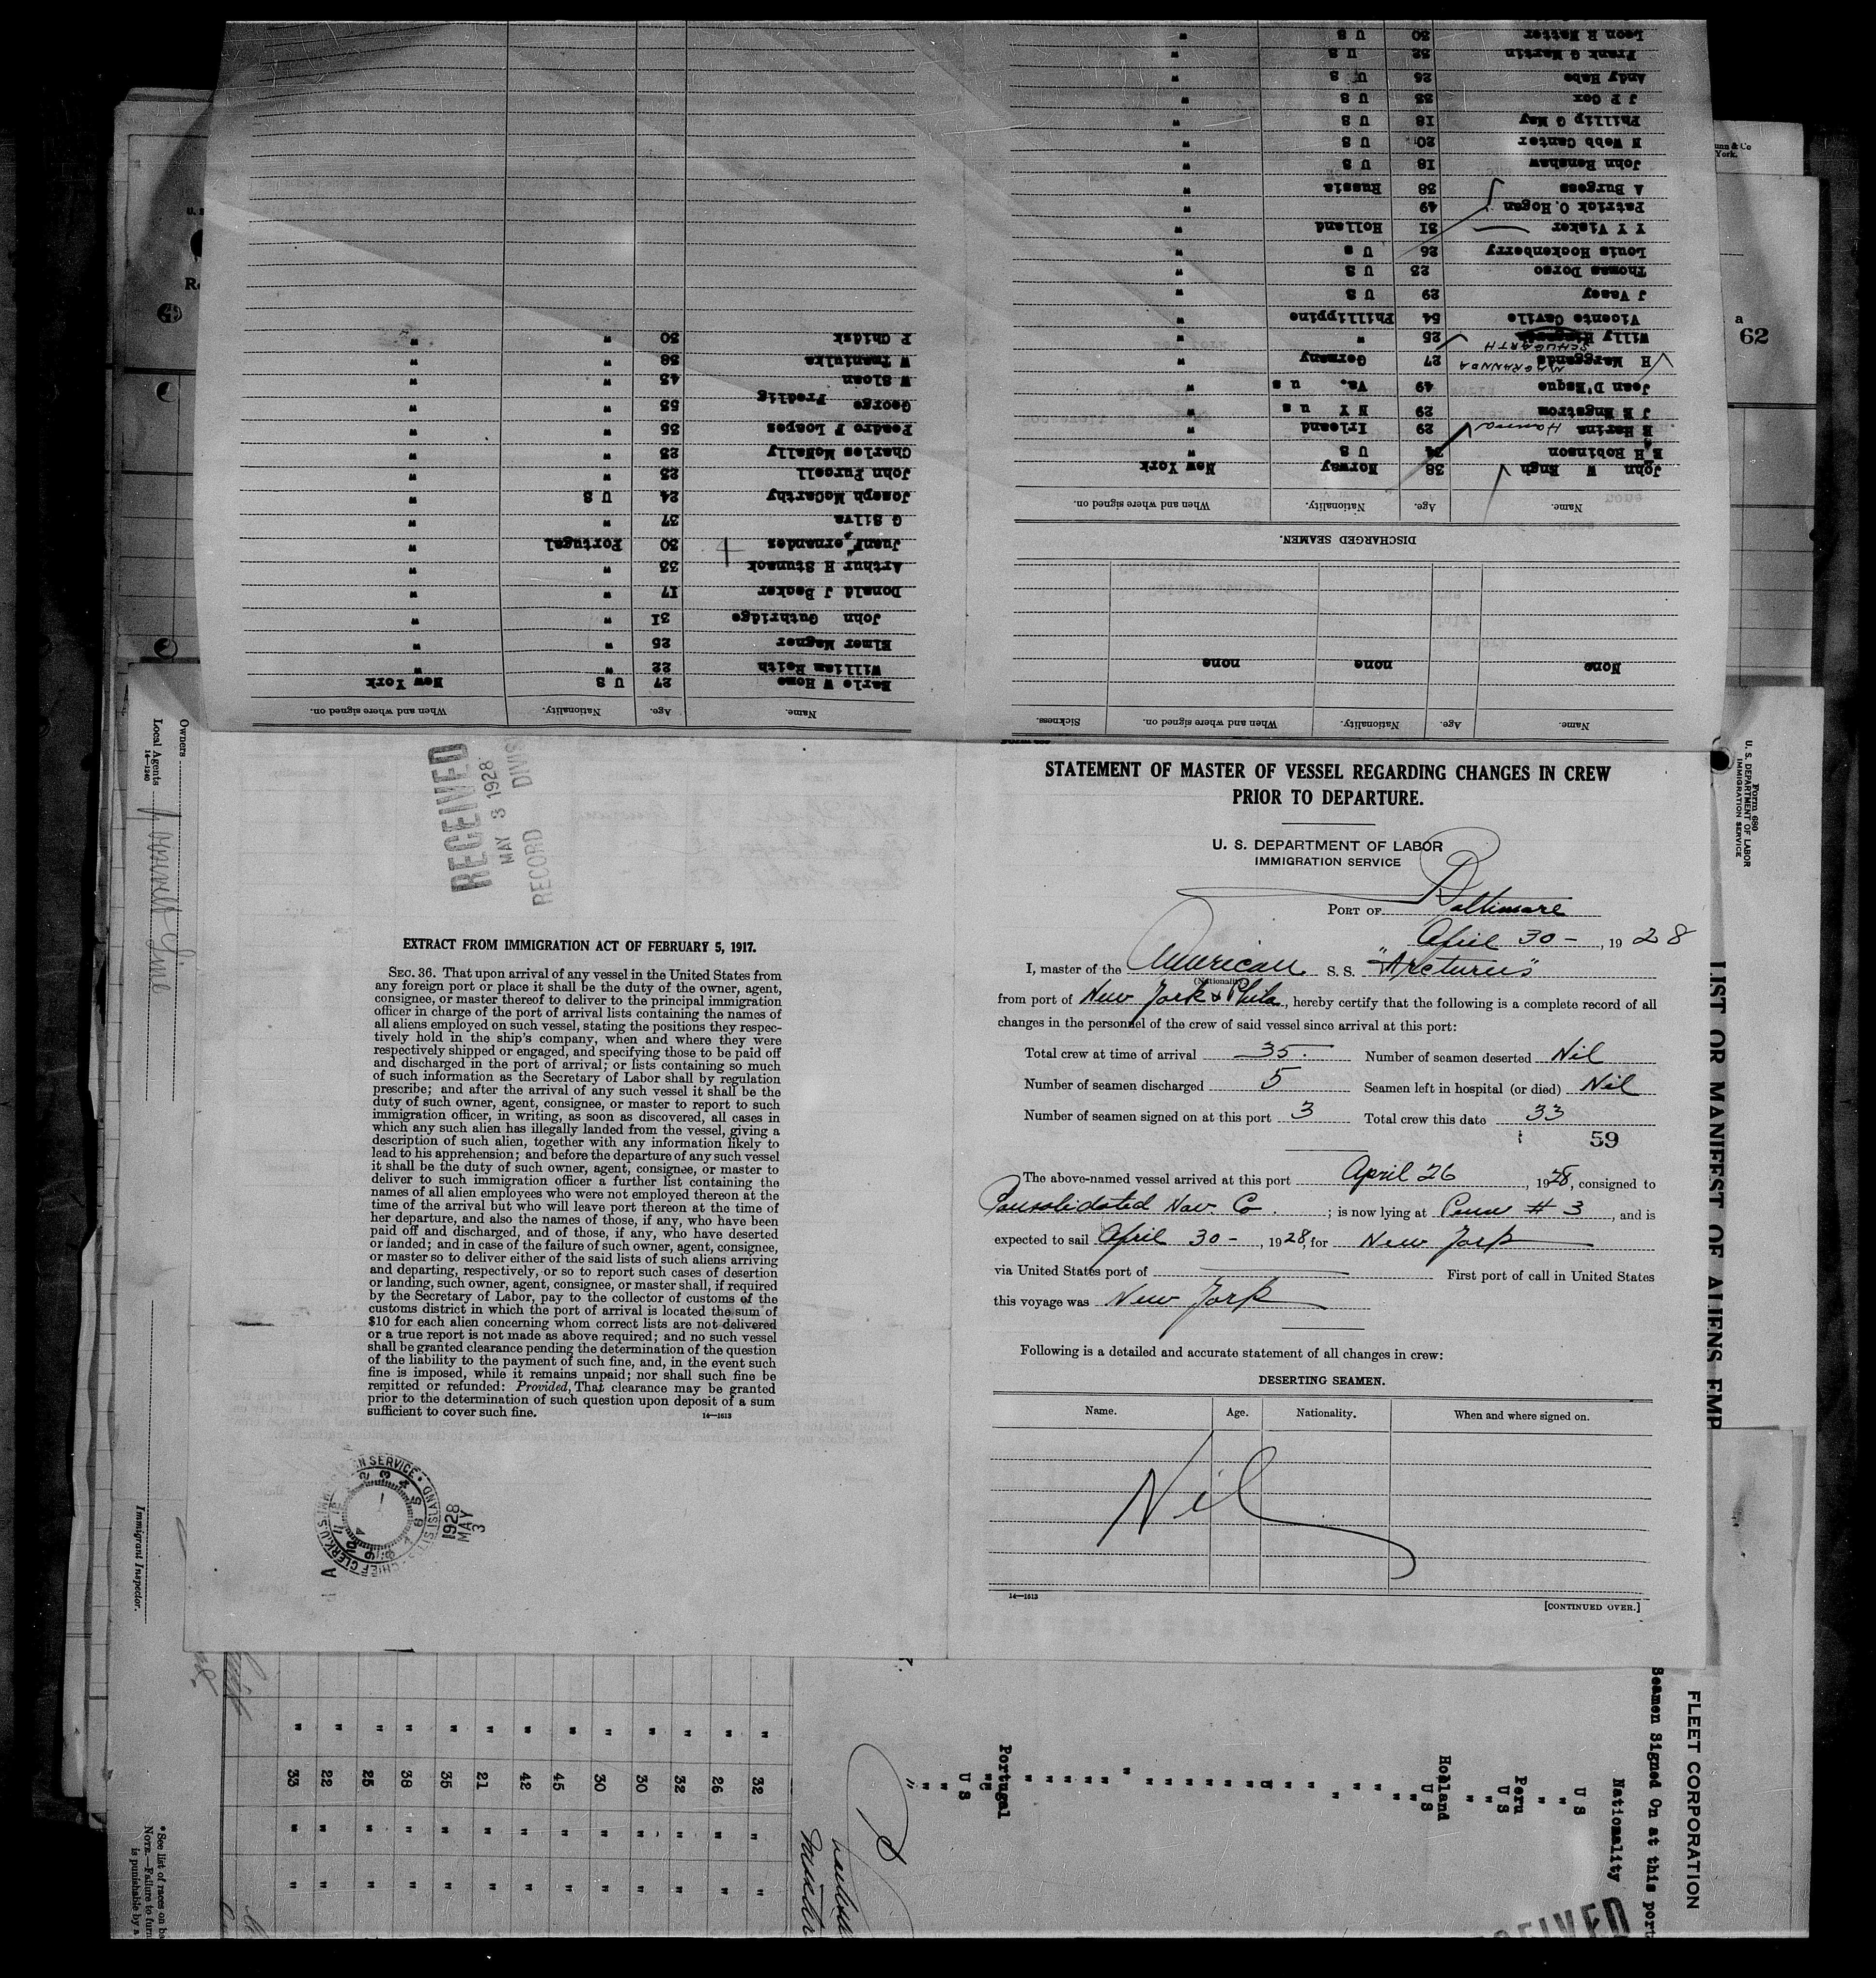 STATEMENT OF MASTER OF VESSEL REGARDING CHANGES IN CREW
PRIOR TO DEPARTURE.
U. S. DEPARTMENT OF LABOR
IMMIGRATION SERVICE
PORT OF Baltimore
April 30 - , 1928
I, master of the American S. S. "Arcturus"
(Nationality)
from port of New York & Phila, hereby certify that the following is a complete record of all
changes in the personnel of the crew of said vessel since arrival at this port:
Total crew at time of arrival 35. Number of seamen deserted Nil
Number of seamen discharged 5 Seamen left in hospital (or died) Nil
Number of seamen signed on at this port 3 Total crew this date 33
59
The above-named vessel arrived at this port April 26, 1928, consigned to
Consolidated Nav. Co. ; is now lying at Penn # 3, and is
expected to sail April 30 -, 1928, for New York
via United States port of First port of call in United States
this voyage was New York
Following is a detailed and accurate statement of all changes in crew:
DESERTING SEAMEN.
Name. Age. Nationality. When and where signed on.
Nil
14—1613
[CONTINUED OVER.]
RECEIVED
MAY 3 1928
RECORD DIVIS
EXTRACT FROM IMMIGRATION ACT OF FEBRUARY 5, 1917.
SEC. 36. That upon arrival of any vessel in the United States from
any foreign port or place it shall be the duty of the owner, agent,
consignee, or master thereof to deliver to the principal immigration
officer in charge of the port of arrival lists containing the names of
all aliens employed on such vessel, stating the positions they respec-
tively hold in the ship's company, when and where they were
respectively shipped or engaged, and specifying those to be paid off
and discharged in the port of arrival; or lists containing so much
of such information as the Secretary of Labor shall by regulation
prescribe; and after the arrival of any such vessel it shall be the
duty of such owner, agent, consignee, or master to report to such
immigration officer, in writing, as soon as discovered, all cases in
which any such alien has illegally landed from the vessel, giving a
description of such alien, together with any information likely to
lead to his apprehension; and before the departure of any such vessel
it shall be the duty of such owner, agent, consignee, or master to
deliver to such immigration officer a further list containing the
names of all alien employees who were not employed thereon at the
time of the arrival but who will leave port thereon at the time of
her departure, and also the names of those, if any, who have been
paid off and discharged, and of those, if any, who have deserted
or landed; and in case of the failure of such owner, agent, consignee,
or master so to deliver either of the said lists of such aliens arriving
and departing, respectively, or so to report such cases of desertion
or landing, such owner, agent, consignee, or master shall, if required
by the Secretary of Labor, pay to the collector of customs of the
customs district in which the port of arrival is located the sum of
$10 for each alien concerning whom correct lists are not delivered
or a true report is not made as above required; and no such vessel
shall be granted clearance pending the determination of the question
of the liability to the payment of such fine, and, in the event such
fine is imposed, while it remains unpaid; nor shall such fine be
remitted or refunded: Provided, That clearance may be granted
prior to the determination of such question upon deposit of a sum
sufficient to cover such fine.
14—1613
1928
MAY
3
Name. Age. Nationality. When and where signed on. Sickness.
None none none
DISCHARGED SEAMEN.
Name. Age. Nationality. When and where signed on.
John W Rugh 38 Norway New York
H Robinson U S "
Harins Hanna 29 Irleand "
J E Engstrom 29 N Y u s "
Jean D'Esque 49 Va. u s "
H Marggrands MAGRANNDA 27 Germany "
Willy SCHUGARTH 25 " "
Vicente Caville 54 Phillippine "
J Vasey 29 U S "
Thomas Dorso 23 U S "
Louis Hockenberry 26 U s "
Y Y Visker 31 Holland "
Patrick O. Hogan 49 "
A Burgess 38 Russia "
John Renshaw 18 U S "
Webb Canter 20 U S "
Phillip G May 18 U S "
J P Cox 33 U S "
Andy Habe 26 U S "
Frank G Martin 32 U S "
Leon R Natter 30 U S "
Name. Age. Nationality. When and where signed on.
Earle W Howe 27 U S New York
William Reith 22 " "
Elmer Wagner 25 " "
John Guthridge 31 " "
Donald J Becker 17 " "
Arthur H Stunack 33 " "
Juan Fernandes 30 Portugal "
G Silva 37 " "
Joseph McCarthy 24 U S "
John Purcell 23 " "
Charles McNally 23 " "
Peadro F Loapes 35 " "
George Fredlig 53 " "
W Sloan 43 " "
W Tmaniulks 38 " "
P Chidsk 30 " "
62
Form 680
U. S. DEPARTMENT OF LABOR
IMMIGRATION SERVICE
LIST OR MANIFEST OF ALIENS EMP
Owners
Local Agents
14—1240
Line
Immigrant Inspector.
FLEET CORPORATION
Seamen Signed On at this port
Nationality
U S
"
"
Peru
U S
"
"
Holland
U S
Portugal
U S
32
26
32
30
30
45
42
21
35
38
25
22
33
*See list of races on b
NOTE.—Failure to furn
is punishable by a